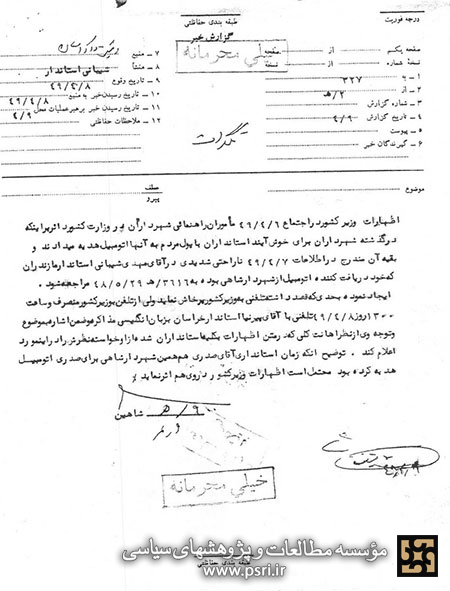 طبقه بندی حفاظتی
درجه فوریت
گزارش خبر
خیلی محرمانه
صفحه یکم از صفحه
نسخه شماره از نسخه
۱ – به ۳۲۷
۲ – از ۲/هـ
۳ – شماره گزارش
۴ – تاریخ گزارش ۴/۹
۵ – پیوست
۶ – گیرندگان خبر
۷ – منبع
۸ – منشأ شیبانی استاندار
۹ – تاریخ وقوع ۴۹/۴/۸
۱۰ – تاریخ رسیدن خبر به منبع ۴۹/۴/۸
۱۱ – تاریخ رسیدن خبر به رهبر عملیات محل ۴/۹
۱۲ – ملاحظات حفاظتی
تلگراف
موضوع
عطف
پیرو
اظهارات وزیر کشور در اجتماع ۴۹/۴/۶ مأموران راهنمائی شهرداران در وزارت کشور اثر براینکه
در گذشته شهرداران برای خوش آیند استانداران با پول مردم به آنها اتومبیل هدیه میدادند و
بقیه آن مندرج در اطلاعات ۴۹/۴/۷ ناراحتی شدیدی در آقای مهدی شیبانی استاندار مازندران
که خود دریافت کننده اتومبیل از شهردار شاهی بوده به ۳۱۱۶/هـ ۴۸/۵/۲۹ مراجعه شود.
ایجاد نموده بحدی که قصد داشته تلفنی به وزیر کشور پرخاش نماید ولی از تلفن بوزیر کشور منصرف و ساعت
۱۳۰۰ روز ۴۹/۴/۸ تلفنی با آقای پیرنیا استاندار خراسان بزبان انگلیسی مذاکره و ضمن اشاره بموضوع
و توجیه وی از نظر اهانت کلی که در متن اظهارات بکلیه استانداران شده از او خواسته نظرش را در اینمورد
اعلام کند . توضیح آنکه زمان استانداری آقای صدری هم همین شهردار شاهی برای صدری اتومبیل
هدیه کرده بود محتمل است اظهارات وزیر کشور در وی هم اثر نماید
۹/هـ شاهین
خیلی محرمانه
مؤسسه مطالعات و پژوهشهای سیاسی
طبقه بندی حفاظتی
www.psri.ir